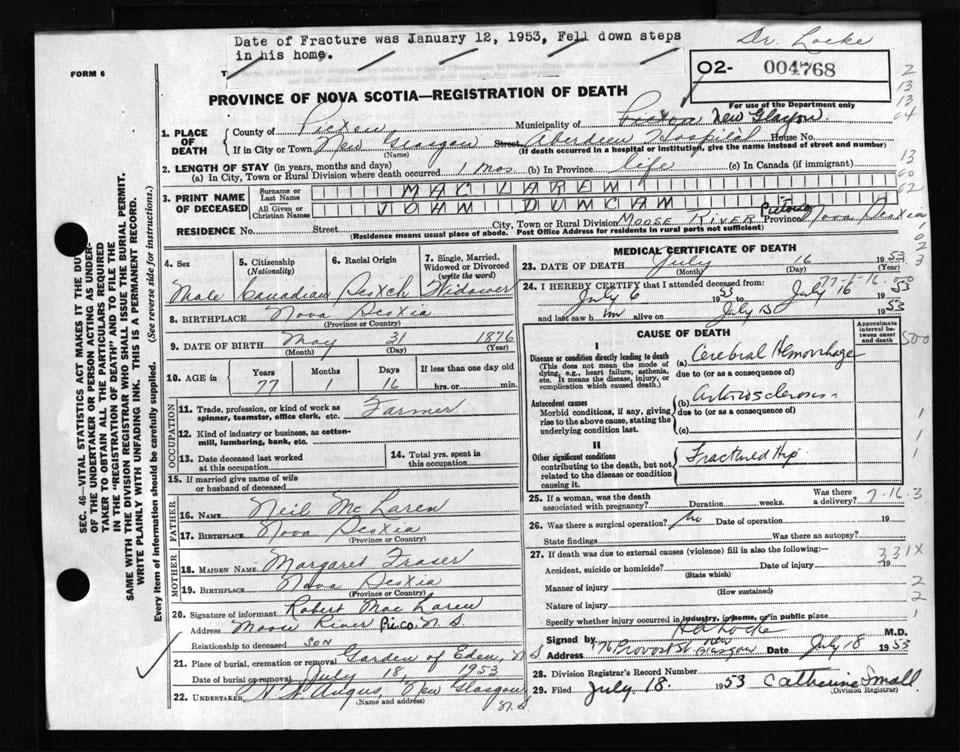 Date of Fracture was January 12, 1953, Fell down steps
in his home.
Dr. Locke
FORM 6
02- 004768
For use of the Department only
PROVINCE OF NOVA SCOTIA—REGISTRATION OF DEATH
1. PLACE OF DEATH
County of Pictou Municipality of Pictou New Glasgow
If in City or Town New Glasgow Street Aberdeen Hospital House No.
(Name) (If death occurred in a hospital or institution, give the name instead of street and number)
2. LENGTH OF STAY (in years, months and days)
(a) In City, Town or Rural Division where death occurred 1 Mos (b) In Province Life (c) In Canada (if immigrant)
3. PRINT NAME OF DECEASED
Surname or Last Name MAC LAREN
All Given or Christian Names JOHN DUNCAN
RESIDENCE No. Street City, Town or Rural Division MOOSE RIVER Pictou Province Nova Scotia
(Residence means usual place of abode. Post Office Address for residents in rural parts not sufficient)
4. Sex Male
5. Citizenship (Nationality) Canadian
6. Racial Origin Scotch
7. Single, Married, Widowed or Divorced (write the word) Widower
8. BIRTHPLACE Nova Scotia
(Province or Country)
9. DATE OF BIRTH May 31 1876
(Month) (Day) (Year)
10. AGE in Years 77 Months 1 Days 16 If less than one day old
hrs. or min.
OCCUPATION
11. Trade, profession, or kind of work as spinner, teamster, office clerk, etc. Farmer
12. Kind of industry or business, as cotton-mill, lumbering, bank, etc.
13. Date deceased last worked at this occupation
14. Total yrs. spent in this occupation
15. If married give name of wife or husband of deceased
FATHER
16. NAME Neil McLaren
17. BIRTHPLACE Nova Scotia
(Province or Country)
MOTHER
18. MAIDEN NAME Margaret Fraser
19. BIRTHPLACE Nova Scotia
(Province or Country)
20. Signature of informant Robert MacLaren
Address Moose River Pic. co. N.S.
Relationship to deceased SON
21. Place of burial, cremation or removal Garden of Eden, N.S
Date of burial or removal July 18, 1953
22. UNDERTAKER Angus, New Glasgow N.S.
(Name and address)
MEDICAL CERTIFICATE OF DEATH
23. DATE OF DEATH July 16 1953
(Month) (Day) (Year)
24. I HEREBY CERTIFY that I attended deceased from:
July 6 1953 to July 16 1953
7-16-53
and last saw him alive on July 15 1953
CAUSE OF DEATH
Approximate interval between onset and death
I
Disease or condition directly leading to death
(This does not mean the mode of dying, e.g., heart failure, asthenia, etc. It means the disease, injury, or complication which caused death.)
(a) Cerebral Hemorrhage
due to (or as a consequence of)
Antecedent causes
Morbid conditions, if any, giving rise to the above cause, stating the underlying condition last.
(b) Arteriosclerosis
due to (or as a consequence of)
(c)
II
Other significant conditions
contributing to the death, but not related to the disease or condition causing it.
Fractured Hip
25. If a woman, was the death associated with pregnancy? Duration weeks. Was there a delivery?
7-16-3
26. Was there a surgical operation? No Date of operation 19
State findings Was there an autopsy?
27. If death was due to external causes (violence) fill in also the following:
331X
Accident, suicide or homicide? Date of injury 19
(State which)
Manner of injury
(How sustained)
Nature of injury
Specify whether injury occurred in industry, in home, or in public place
Signed by H A Locke M.D.
Address 976 Provost St New Glasgow Date July 18 1953
28. Division Registrar's Record Number
29. Filed July 18 1953 Catherine Small
(Division Registrar)
SEC. 46—VITAL STATISTICS ACT MAKES IT THE DUTY
OF THE UNDERTAKER OR PERSON ACTING AS UNDER-
TAKER TO OBTAIN ALL THE PARTICULARS REQUIRED
IN THE "REGISTRATION OF DEATH" AND TO FILE THE
SAME WITH THE DIVISION REGISTRAR WHO SHALL ISSUE THE BURIAL PERMIT.
WRITE PLAINLY WITH UNFADING INK. THIS IS A PERMANENT RECORD.
Every item of information should be carefully supplied. (See reverse side for instructions.)
2
13
13
04
13
60
02
500
1
1
1
2
2
1